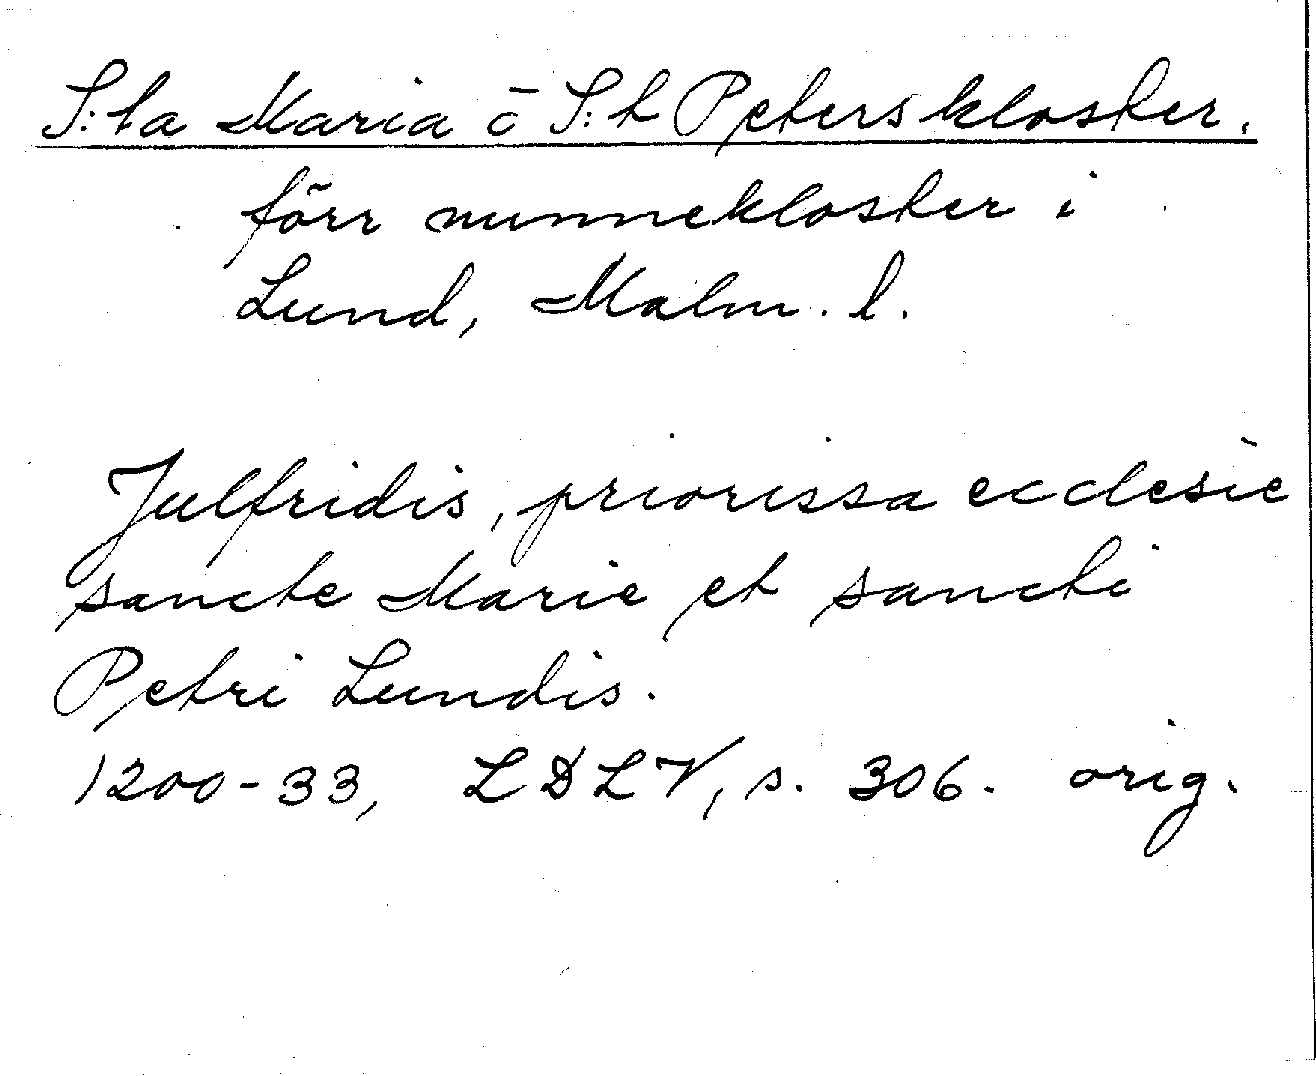 S:ta Maria o S:t Peterskloster.
förr nunnekloster i
Lund, Malm. l.
Julfridis, priorissa ecclesie
sancte Marie et sancti
Petri Lundis.
1200-33, LDLV, s. 306. orig.